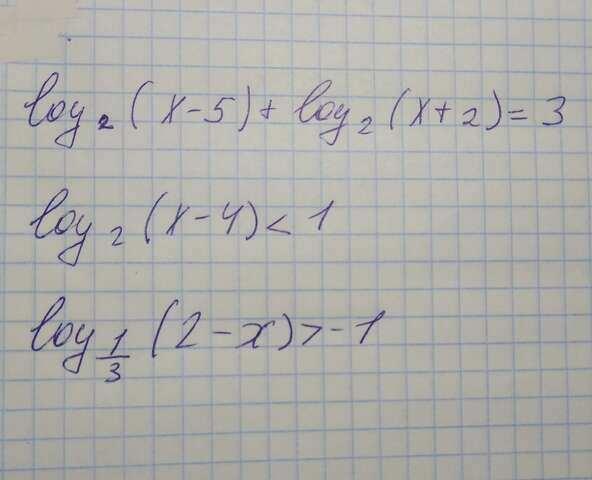 log₂(x-5)+log₂(x+2)=3
log₂(x-4)<1
log_{1/3}(2-x)>-1